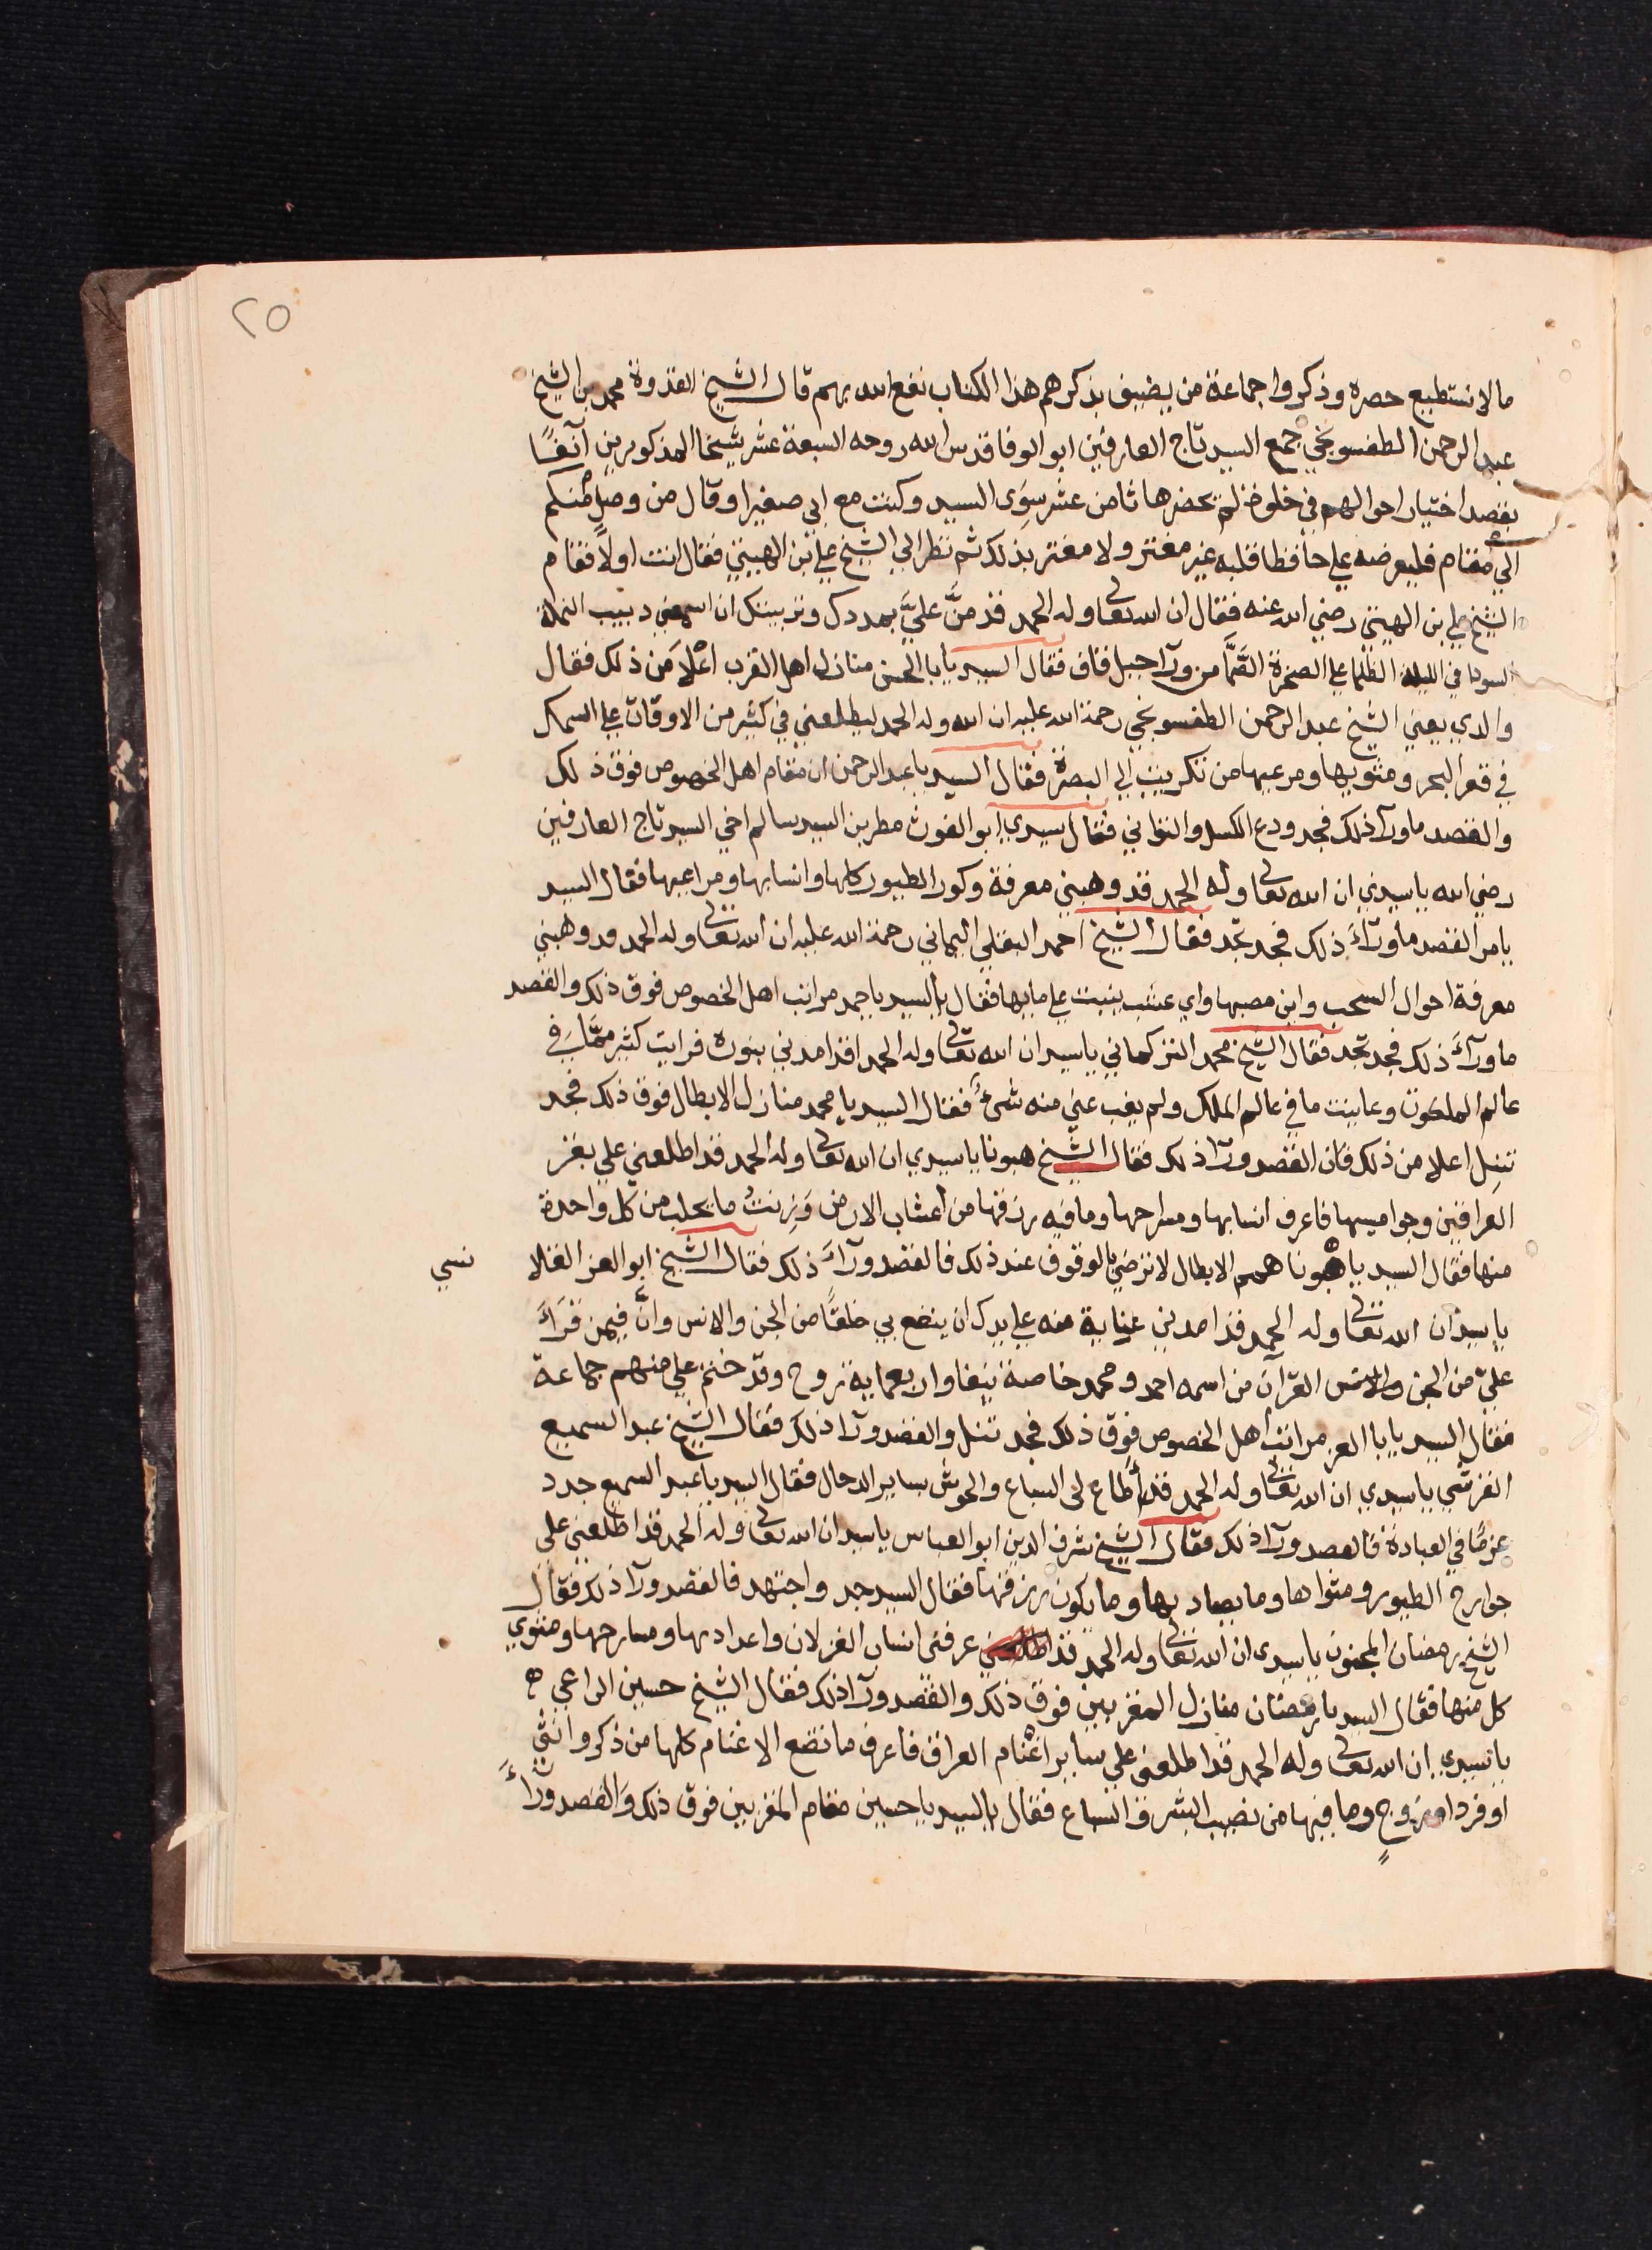 ٢٥
ما لا نستطيع حصره وذكروا جماعة من يضيق بذكرهم هذا الكتاب نفع الله بهم قال الشيخ القدوة محمد بن الشيخ
عبد الرحمن الطفسونجي جمع السيد تاج العارفين ابو الوفا قدس الله روحه السبعة عشر شيخا المذكورين آنفًا
بقصد اختيار احوالهم في خلوة لم يحضرها ثامن عشر سِوَى السيد وكنت مع ابي صغيرا وقال من وصل منكم
الي مقام فليعرضه علي حافظا قلبه غير مغتر ولا مفتر بذلك ثم نظر الي الشيخ علي بن الهيتي فقال انت اولًا فقام
الشيخ علي بن الهيتي رضي الله عنه فقال ان الله تعالى وله الحمد قد منَّ عليَّ بمددك وتربيتك ان اسمعني دبيب النملة
السودا في الليلة الظلما علي الصخرة الصَّمَّا من ورآ جبل قاف فقال السيد يابا الحسن منازل اهل القرب اعلا من ذلك فقال
والدي يعني الشيخ عبد الرحمن الطفسونجي رحمة الله عليه ان الله وله الحمد ليطلعني في كثير من الاوقات علي السمك
في قعر البحر ومثويها ومرعيها من تكريت الي البصرة فقال السيد يا عبد الرحمن ان مقام اهل الخصوص فوق ذلك
والقصد ماورآ ذلك فجد ودع الكسل والتواني فقال سيدي ابو الغوث مطر بن السيد سالم اخي السيد تاج العارفين
رضي الله يا سيدي ان الله تعالى وله الحمد قد وهبني معرفة وكور الطيور كلها وانسابها ومراعيها فقال السيد
يا مر القصد ماورآءَ ذلك فجد تجد فقال الشيخ احمد البقلي اليماني رحمة الله عليه ان الله تعالى وله الحمد قد وهبني
معرفة احوال السحب واين مصبها واي عشب ينبت علي مايها فقال السيد يا حمد مراتب اهل الخصوص فوق ذلك والقصد
ماورآءَ ذلك فجد تجد فقال الشيخ محمد التركماني يا سيد ان الله تعالى وله الحمد اقد امدني بنوره فرايت كثير ممَّا في
عالم الملكوت وعاينت ما في عالم الملك ولم يغب عني منه شيءٌ فقال السيد يا محمد منازل الابطال فوق ذلك فجد
تنل اعلا من ذلك فان القصد ورآ ذلك فقال الشيخ هبونا يا سيدي ان الله تعالى وله الحمد قد اطلعني علي بقر
العراقين وجواميسها فاعرف انسابها ومسارحها وما فيه رزقها من اعشاب الارض وَزِنتُ ما يحلب من كل واحدة
منها فقال السيد يا هبونا همم الابطال لا ترضي بالوقوف عند ذلك فالقصد ورآءَ ذلك فقال الشيخ ابو العز القلا
نسي
يا سيد ان الله تعالى وله الحمد قد امدني عناية منه علي يدك ان ينفع بي خلقًا من الجن والانس وانَّ فيمن قرَاءَ
عليّ من الجن والانس القرآن من اسمه احمد ومحمد خاصة نيفا واربعماية زوج وقد ختم علي منهم جماعة
فقال السيد يابا العز مراتب أهل الخصوص فوق ذلك فجد تنل والقصد ورآ ذلك فقال الشيخ عبد السميع
القرشي يا سيدي ان الله تعالى وله الحمد قد أطاع لي السباع والحوش ساير الدحال فقال السيد يا عبد السميع جدد
عزمًا في العبادة فالقصد ورآ ذلك فقال الشيخ شرف الدين ابو العباس يا سيد ان الله تعالى وله الحمد قد اطلعني على
جوارح الطيور ومثواها وما يصاد بها وما يكون رزقها فقال السيد جد واجتهد فالقصد ورآ ذلك فقال
الشيخ رمضان المجنون يا سيدي ان الله تعالى وله الحمد قد عرفني انساب الغزلان واعدادها ومسارحها ومثوي
كل منها فقال السيد يا رمضان منازل المقربين فوق ذلك والقصد ورآ ذلك فقال الشيخ حسين الراعي
يا سيدي ان الله تعالى وله الحمد قد اطلعني علي ساير اغنام العراق فاعرف ما تضع الاغنام كلها من ذكر وانثي
او فرد او زوج وما فيها من نصيب البشر والسباع فقال السيد يا حسين مقام المقربين فوق ذلك والقصد ورآءَ